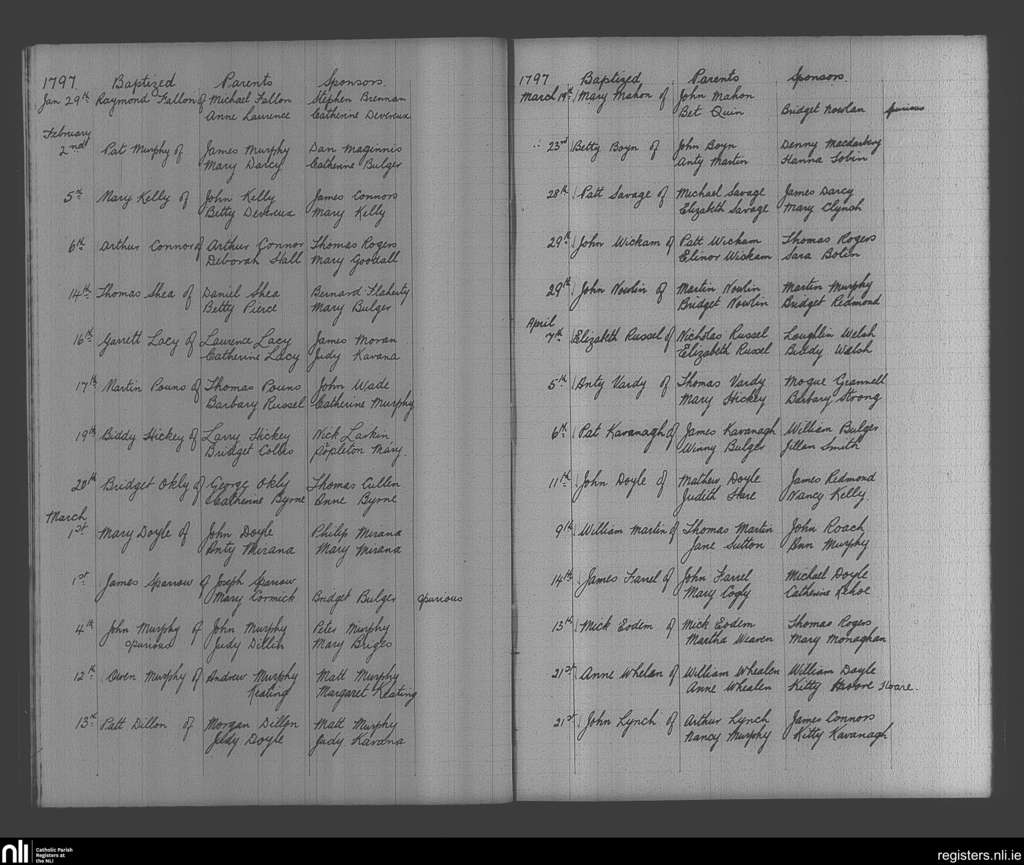 1797 Baptized Parents Sponsors
Jan 29th Raymond Fallon of Michael Fallon Stephen Brennan
Anne Laurence Catherine Devereux
February
2nd Pat Murphy of James Murphy Dan Maginnis
Mary Darcy Catherine Bulger
5th Mary Kelly of John Kelly James Connors
Betty Devereux Mary Kelly
6th Arthur Connor of Arthur Connor Thomas Rogers
Deborah Hall Mary Goodall
14th Thomas Shea of Daniel Shea Bernard Flaherty
Betty Pierce Mary Bulger
16th Garrett Lacy of Laurence Lacy James Moran
Catherine Lacy Judy Kavana
17th Martin Pouns of Thomas Pouns John Wade
Barbary Russel Catherine Murphy
19th Biddy Hickey of Larry Hickey Nick Larkin
Bridget Colles Popleton Mary.
20th Bridget Okly of George Okly Thomas Cullen
Catherine Byrne Anne Byrne
March
1st Mary Doyle of John Doyle Philip Mirana
Anty Mirana Mary Mirana
1st James Sparrow of Joseph Sparrow
Mary Cormick Bridget Bulger spurious
4th John Murphy of John Murphy Peter Murphy
spurious Judy Dillin Mary Briges
12th Owen Murphy of Andrew Murphy Matt Murphy
Keating Margaret Keating
13th Patt Dillon of Morgan Dillon Matt Murphy
Judy Doyle Judy Kavana
1797 Baptized Parents Sponsors
March 19th Mary Mahon of John Mahon
Bet Quin Bridget Nowlan spurious
23rd Betty Boyn of John Boyn Denny
Anty Martin Hanna Tobin
28th Patt Savage of Michael Savage James Darcy
Elizabeth Savage Mary Clynch
29th John Wickam of Patt Wickam Thomas Rogers
Elinor Wickam Sara Bolen
29th John Nowlin of Martin Nowlin Martin Murphy
Bridget Nowlin Bridget Redmond
April
7th Elizabeth Russel of Nicholas Russel Loughlin Welsh
Elizabeth Russel Biddy Walsh
5th Anty Vardy of Thomas Vardy Mogue Grannell
Mary Hickey Barbary Strong
6th Pat Kavanagh of James Kavanagh William Bulger
Winny Bulger Jillan Smith
11th John Doyle of Mathew Doyle James Redmond
Judith Hare Nancy Kelly.
9th William Martin of Thomas Martin John Roach
Jane Sutton Ann Murphy
14th James Farrel of John Farrel Michael Doyle
Mary Cogly Catherine Kehoe
13th Mick Eodem of Mick Eodem Thomas Rogers
Martha Weaven Mary Monaghan
21st Anne Whelan of William Whealen William Doyle
Anne Whealen Kitty Hoare.
21st John Lynch of Arthur Lynch James Connors
Nancy Murphy Kitty Kavanagh
nli Catholic Parish
Registers at
the NLI
registers.nli.ie